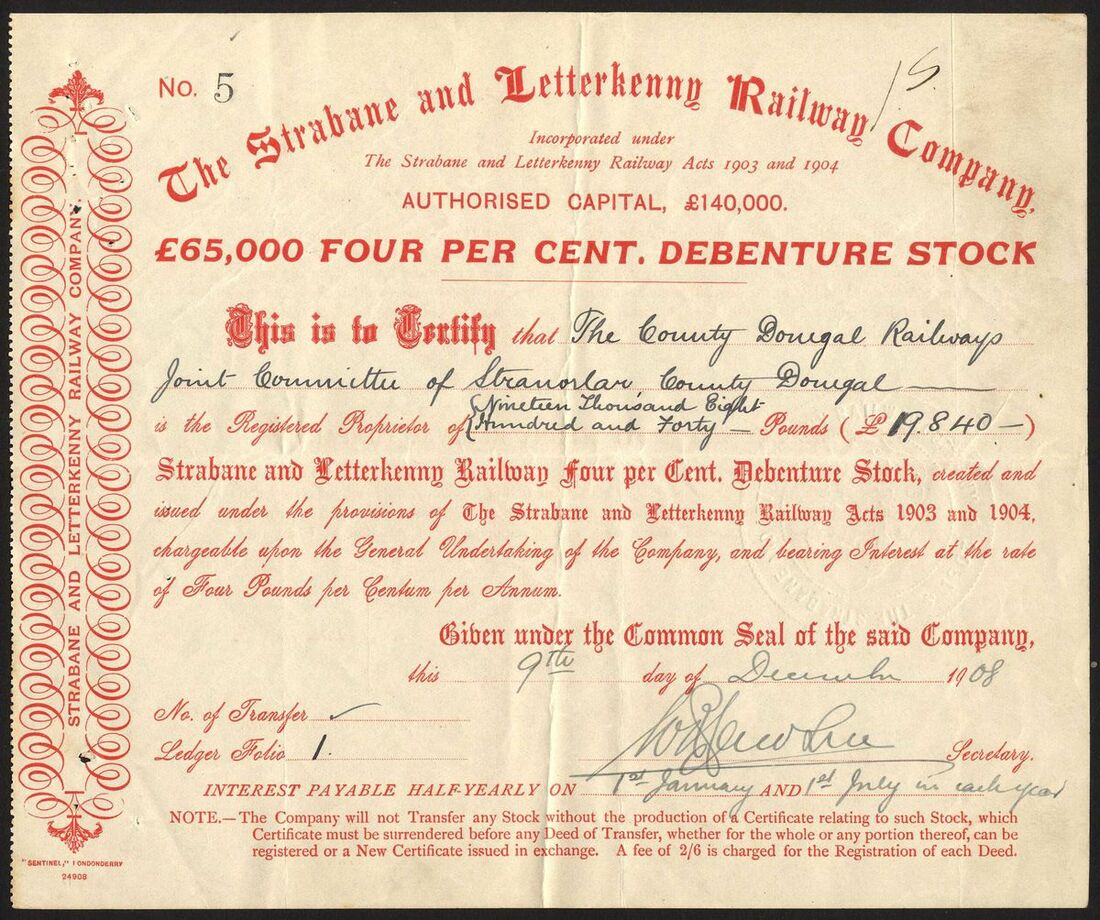 No. 5
The Strabane and Letterkenny Railway Company,
Incorporated under
The Strabane and Letterkenny Railway Acts 1903 and 1904
AUTHORISED CAPITAL, £140,000.
£65,000 FOUR PER CENT. DEBENTURE STOCK
This is to Certify that The County Donegal Railways
Joint Committee of Stranorlar County Donegal
{Nineteen Thousand Eight
is the Registered Proprietor of {Hundred and Forty — Pounds (£19.840 —)
Strabane and Letterkenny Railway Four per Cent. Debenture Stock, created and
issued under the provisions of The Strabane and Letterkenny Railway Acts 1903 and 1904,
chargeable upon the General Undertaking of the Company, and bearing Interest at the rate
of Four Pounds per Centum per Annum.
Given under the Common Seal of the said Company,
this 9th day of December 1908
No. of Transfer ✓
Ledger Folio 1.
Secretary.
INTEREST PAYABLE HALF-YEARLY ON 1st January AND 1st July in each year
NOTE.—The Company will not Transfer any Stock without the production of a Certificate relating to such Stock, which
Certificate must be surrendered before any Deed of Transfer, whether for the whole or any portion thereof, can be
registered or a New Certificate issued in exchange. A fee of 2/6 is charged for the Registration of each Deed.
STRABANE AND LETTERKENNY RAILWAY COMPANY.
"SENTINEL," LONDONDERRY
24908